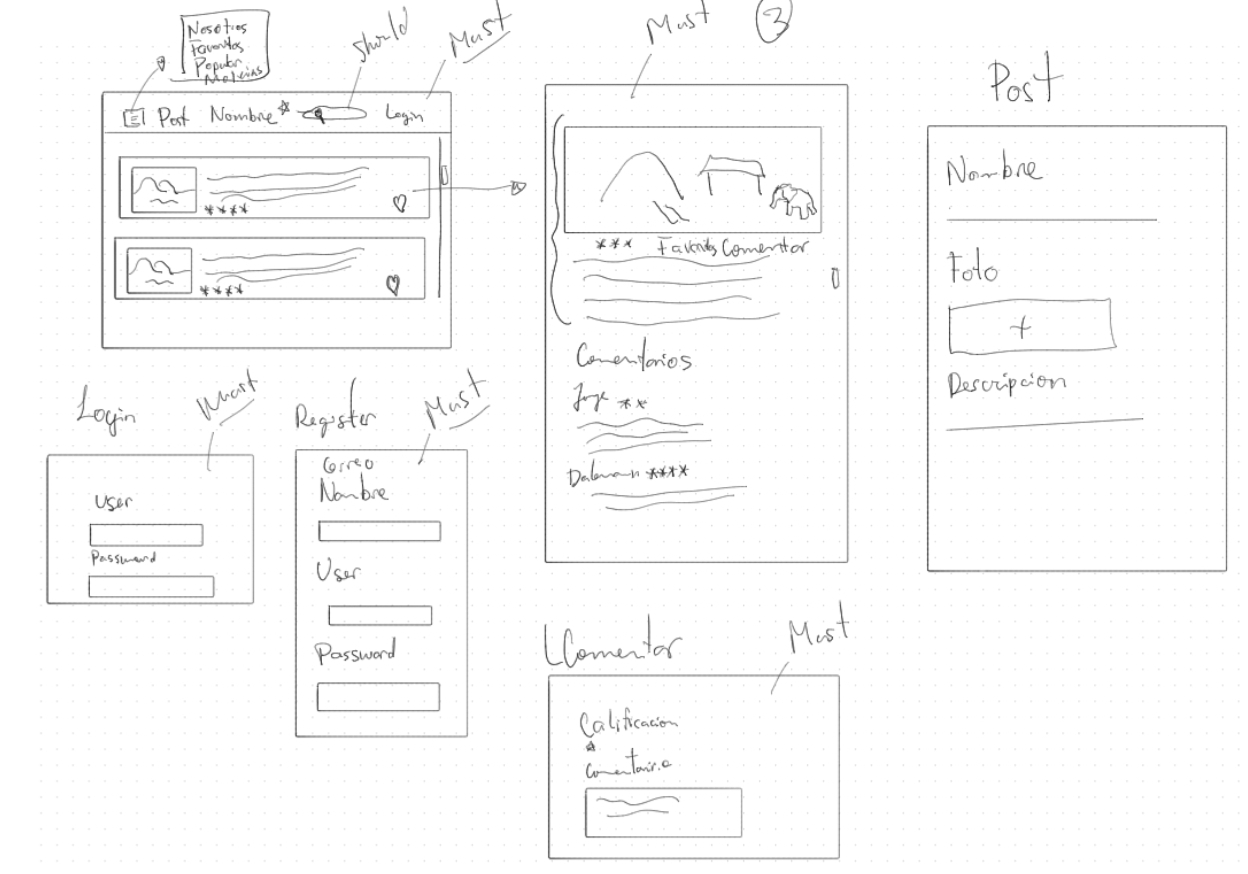 Nosotros
Favoritos
Popular
should
Must
Post Nombre Login
****
****
Must
3
*** Favoritos Comentar
Comentarios
Jorge **
****
Post
Nombre
Foto
+
Descripcion
Login
Must
User
Password
Register
Must
Correo
Nombre
User
Password
Comentar
Must
Calificacion
Comentario